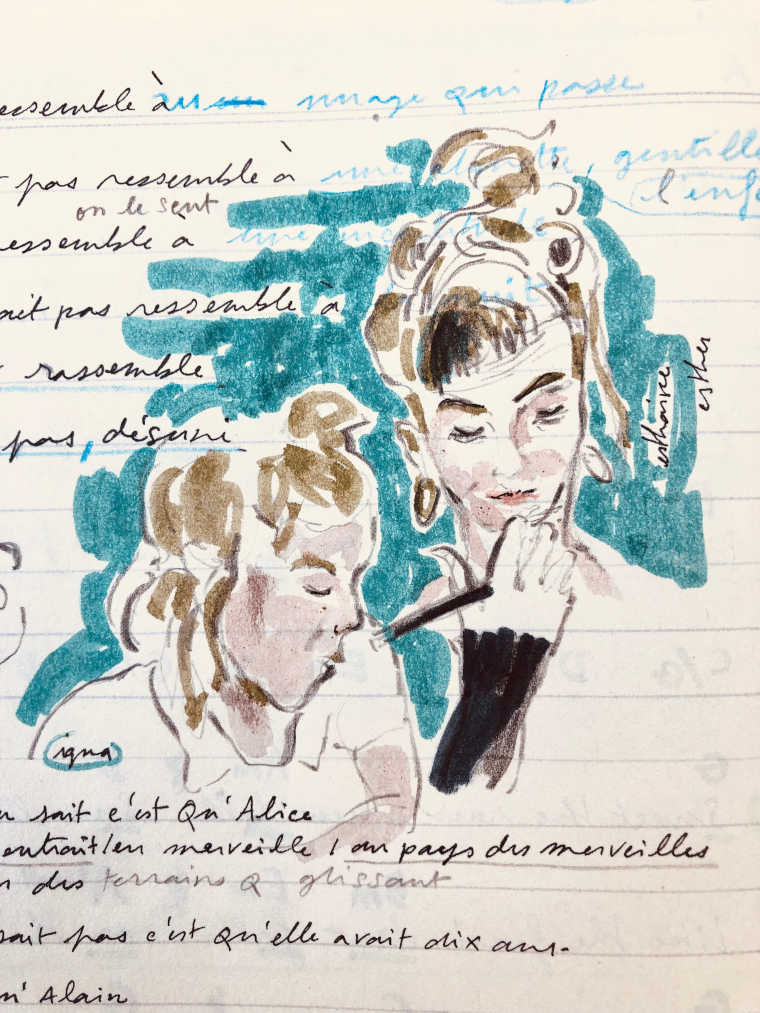 ressemble à nuage qui passe
pas ressemble à une , gentille
on le sent
l'enf
ressemble a une
ait pas ressemble à
rassemble
pas, désuni
esthaivee
esther
igna
sait c'est Qu'Alice
entrait/en merveille / au pays des merveilles
des terrains glissant
sait pas c'est Qu'elle avait dix ans.
n' Alain